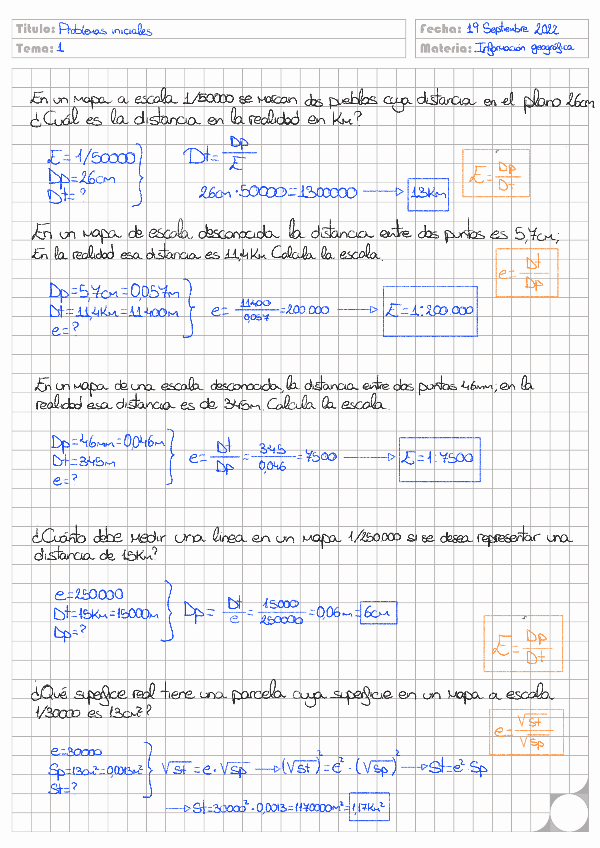 Título: Problemas iniciales
Fecha: 19 Septiembre 2022
Tema: 1
Materia: Información geográfica
En un mapa a escala 1/50000 se marcan dos pueblos cuya distancia en el plano 26cm
¿Cuál es la distancia en la realidad en Km?
E = 1/50000
Dp = 26cm
Dt = ?
Dt = Dp/E
26cm · 50000 = 1300000 → 13Km
E = Dp/Dt
En un mapa de escala desconocida la distancia entre dos puntos es 5,7cm;
En la realidad esa distancia es 11,4Km Calcula la escala.
e = Dt/Dp
Dp = 5,7cm = 0,057m
Dt = 11,4Km = 11400m
e = ?
e = 11400/0,057 = 200.000 → E = 1:200.000
En un mapa de una escala desconocida, la distancia entre dos puntos 46mm, en la
realidad esa distancia es de 345m. Calcula la escala
Dp = 46mm = 0,046m
Dt = 345m
e = ?
e = Dt/Dp = 345/0,046 = 7500 → E = 1:7500
¿Cuánto debe medir una linea en un mapa 1/250.000 si se desea representar una
distancia de 15Km?
e = 250000
Dt = 15Km = 15000m
Dp = ?
Dp = Dt/e = 15000/250000 = 0,06m = 6cm
E = Dp/Dt
¿Qué superficie real tiene una parcela cuya superficie en un mapa a escala
1/30000 es 13cm²?
e = √St/√Sp
e = 30000
Sp = 13cm² = 0,0013m²
St = ?
√St = e · √Sp → (√St)² = e² · (√Sp)² → St = e² Sp
→ St = 30000² · 0,0013 = 1170000m² = 1,17Km²